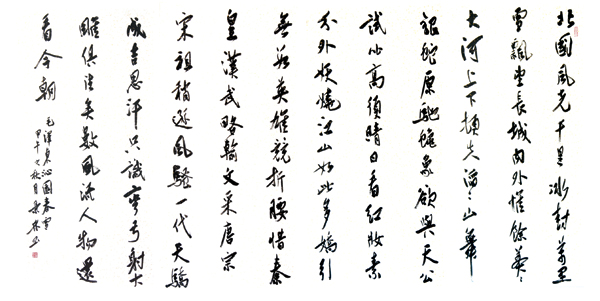 北國風光千里冰封萬里
雪飄望長城內外惟餘莽〻
大河上下頓失滔〻山舞
銀蛇原馳蠟象欲與天公
試比高須晴日看紅妝素
分外妖嬈江山如此多嬌引
無數英雄競折腰惜秦
皇漢武略輸文采唐宗
宋祖稍遜風騷一代天驕
成吉思汗只識彎弓射大
雕俱往矣數風流人物還
看今朝
毛澤東沁園春雪
甲午之秋月